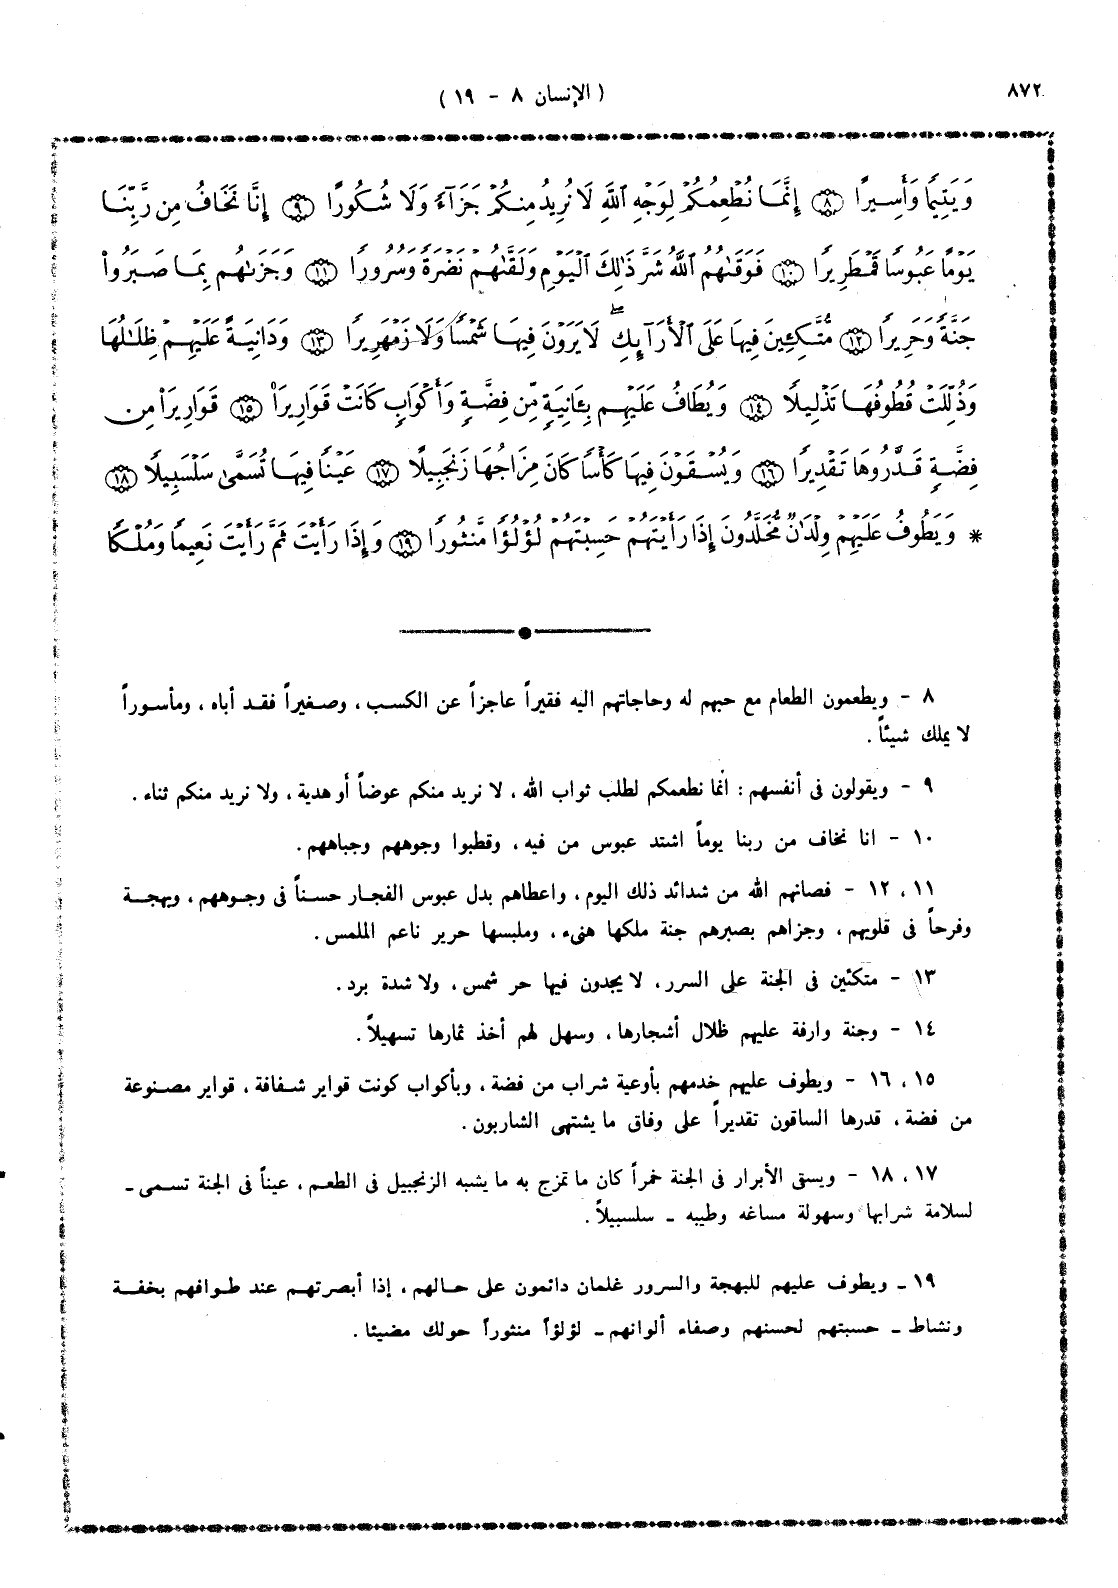 ٨٧٢
( الإنسان ٨ - ١٩ )
وَيَتِيمًا وَأَسِيرًا ٨ إِنَّمَا نُطْعِمُكُمْ لِوَجْهِ ٱللَّهِ لَا نُرِيدُ مِنكُمْ جَزَآءً وَلَا شُكُورًا ٩ إِنَّا نَخَافُ مِن رَّبِّنَا
يَوْمًا عَبُوسًا قَمْطَرِيرًا ١٠ فَوَقَىٰهُمُ ٱللَّهُ شَرَّ ذَٰلِكَ ٱلْيَوْمِ وَلَقَّىٰهُمْ نَضْرَةً وَسُرُورًا ١١ وَجَزَىٰهُم بِمَا صَبَرُوا۟
جَنَّةً وَحَرِيرًا ١٢ مُّتَّكِـِٔينَ فِيهَا عَلَى ٱلْأَرَآئِكِ ۖ لَا يَرَوْنَ فِيهَا شَمْسًا وَلَا زَمْهَرِيرًا ١٣ وَدَانِيَةً عَلَيْهِمْ ظِلَـٰلُهَا
وَذُلِّلَتْ قُطُوفُهَا تَذْلِيلًا ١٤ وَيُطَافُ عَلَيْهِم بِـَٔانِيَةٍ مِّن فِضَّةٍ وَأَكْوَابٍ كَانَتْ قَوَارِيرَا۠ ١٥ قَوَارِيرَا۟ مِن
فِضَّةٍ قَدَّرُوهَا تَقْدِيرًا ١٦ وَيُسْقَوْنَ فِيهَا كَأْسًا كَانَ مِزَاجُهَا زَنجَبِيلًا ١٧ عَيْنًا فِيهَا تُسَمَّىٰ سَلْسَبِيلًا ١٨
* وَيَطُوفُ عَلَيْهِمْ وِلْدَٰنٌ مُّخَلَّدُونَ إِذَا رَأَيْتَهُمْ حَسِبْتَهُمْ لُؤْلُؤًا مَّنثُورًا ١٩ وَإِذَا رَأَيْتَ ثَمَّ رَأَيْتَ نَعِيمًا وَمُلْكًا
٨ - ويطعمون الطعام مع حبهم له وحاجاتهم اليه فقيراً عاجزاً عن الكسب ، وصغيراً فقد أباه ، ومأسوراً
لا يملك شيئاً .
٩ - ويقولون فى أنفسهم : انما نطعمكم لطلب ثواب الله ، لا نريد منكم عوضاً أو هدية ، ولا نريد منكم ثناء .
١٠ - انا نخاف من ربنا يوماً اشتد عبوس من فيه ، وقطبوا وجوههم وجباههم .
١١ ، ١٢ - فصانهم الله من شدائد ذلك اليوم ، واعطاهم بدل عبوس الفجار حسناً فى وجوههم ، وبهجة
وفرحاً فى قلوبهم ، وجزاهم بصبرهم جنة ملكها هنىء ، وملبسها حرير ناعم الملمس .
١٣ - متكئين فى الجنة على السرر ، لا يجدون فيها حر شمس ، ولا شدة برد .
١٤ - وجنة وارفة عليهم ظلال أشجارها ، وسهل لهم أخذ ثمارها تسهيلاً .
١٥ ، ١٦ - ويطوف عليهم خدمهم بأوعية شراب من فضة ، وبأكواب كونت قواير شفافة ، قواير مصنوعة
من فضة ، قدرها الساقون تقديراً على وفاق ما يشتهى الشاربون .
١٧ ، ١٨ - ويسقى الأبرار فى الجنة خمراً كان ما تمزج به ما يشبه الزنجبيل فى الطعم ، عيناً فى الجنة تسمى -
لسلامة شرابها وسهولة مساغه وطيبه - سلسبيلاً .
١٩ - ويطوف عليهم للبهجة والسرور غلمان دائمون على حالهم ، إذا أبصرتهم عند طوافهم بخفة
ونشاط - حسبتهم لحسنهم وصفاء ألوانهم - لؤلؤاً منثوراً حولك مضيئا .